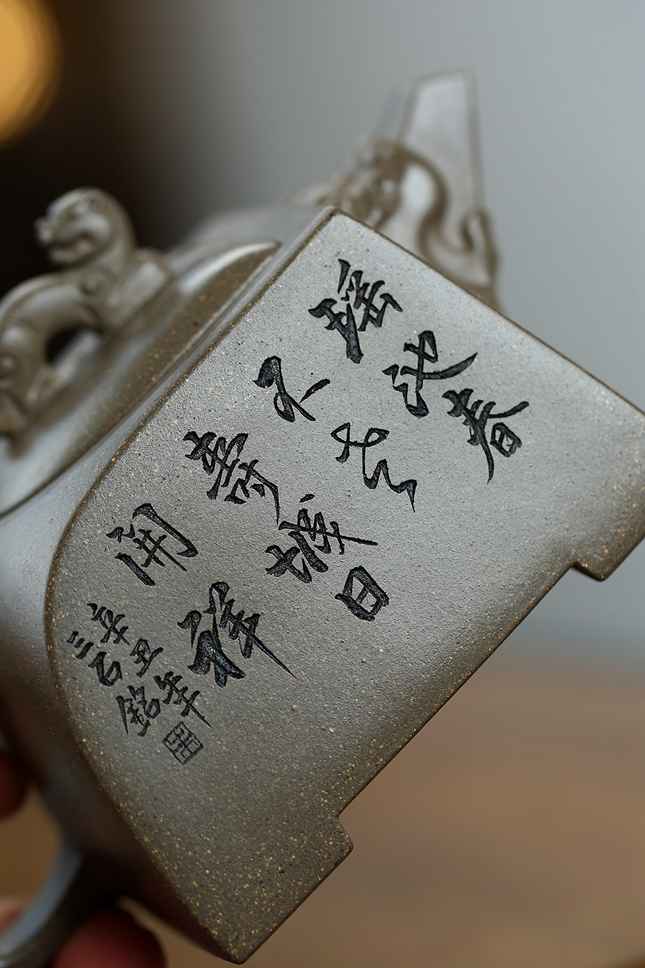 瑶池春
不老
壽域日
開祥
辛丑年
三石銘